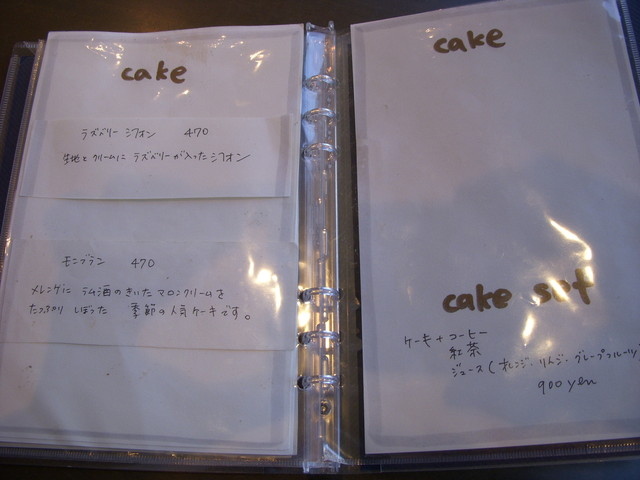 cake
ラズベリー シフォン 470
生地とクリームに ラズベリーが入ったシフォン
モンブラン 470
メレンゲに ラム酒のきいたマロンクリームを
たっぷり しぼった 季節の人気ケーキです。
cake
cake set
ケーキ + コーヒー
紅茶
ジュース(オレンジ・りんご・グレープフルーツ)
900 yen